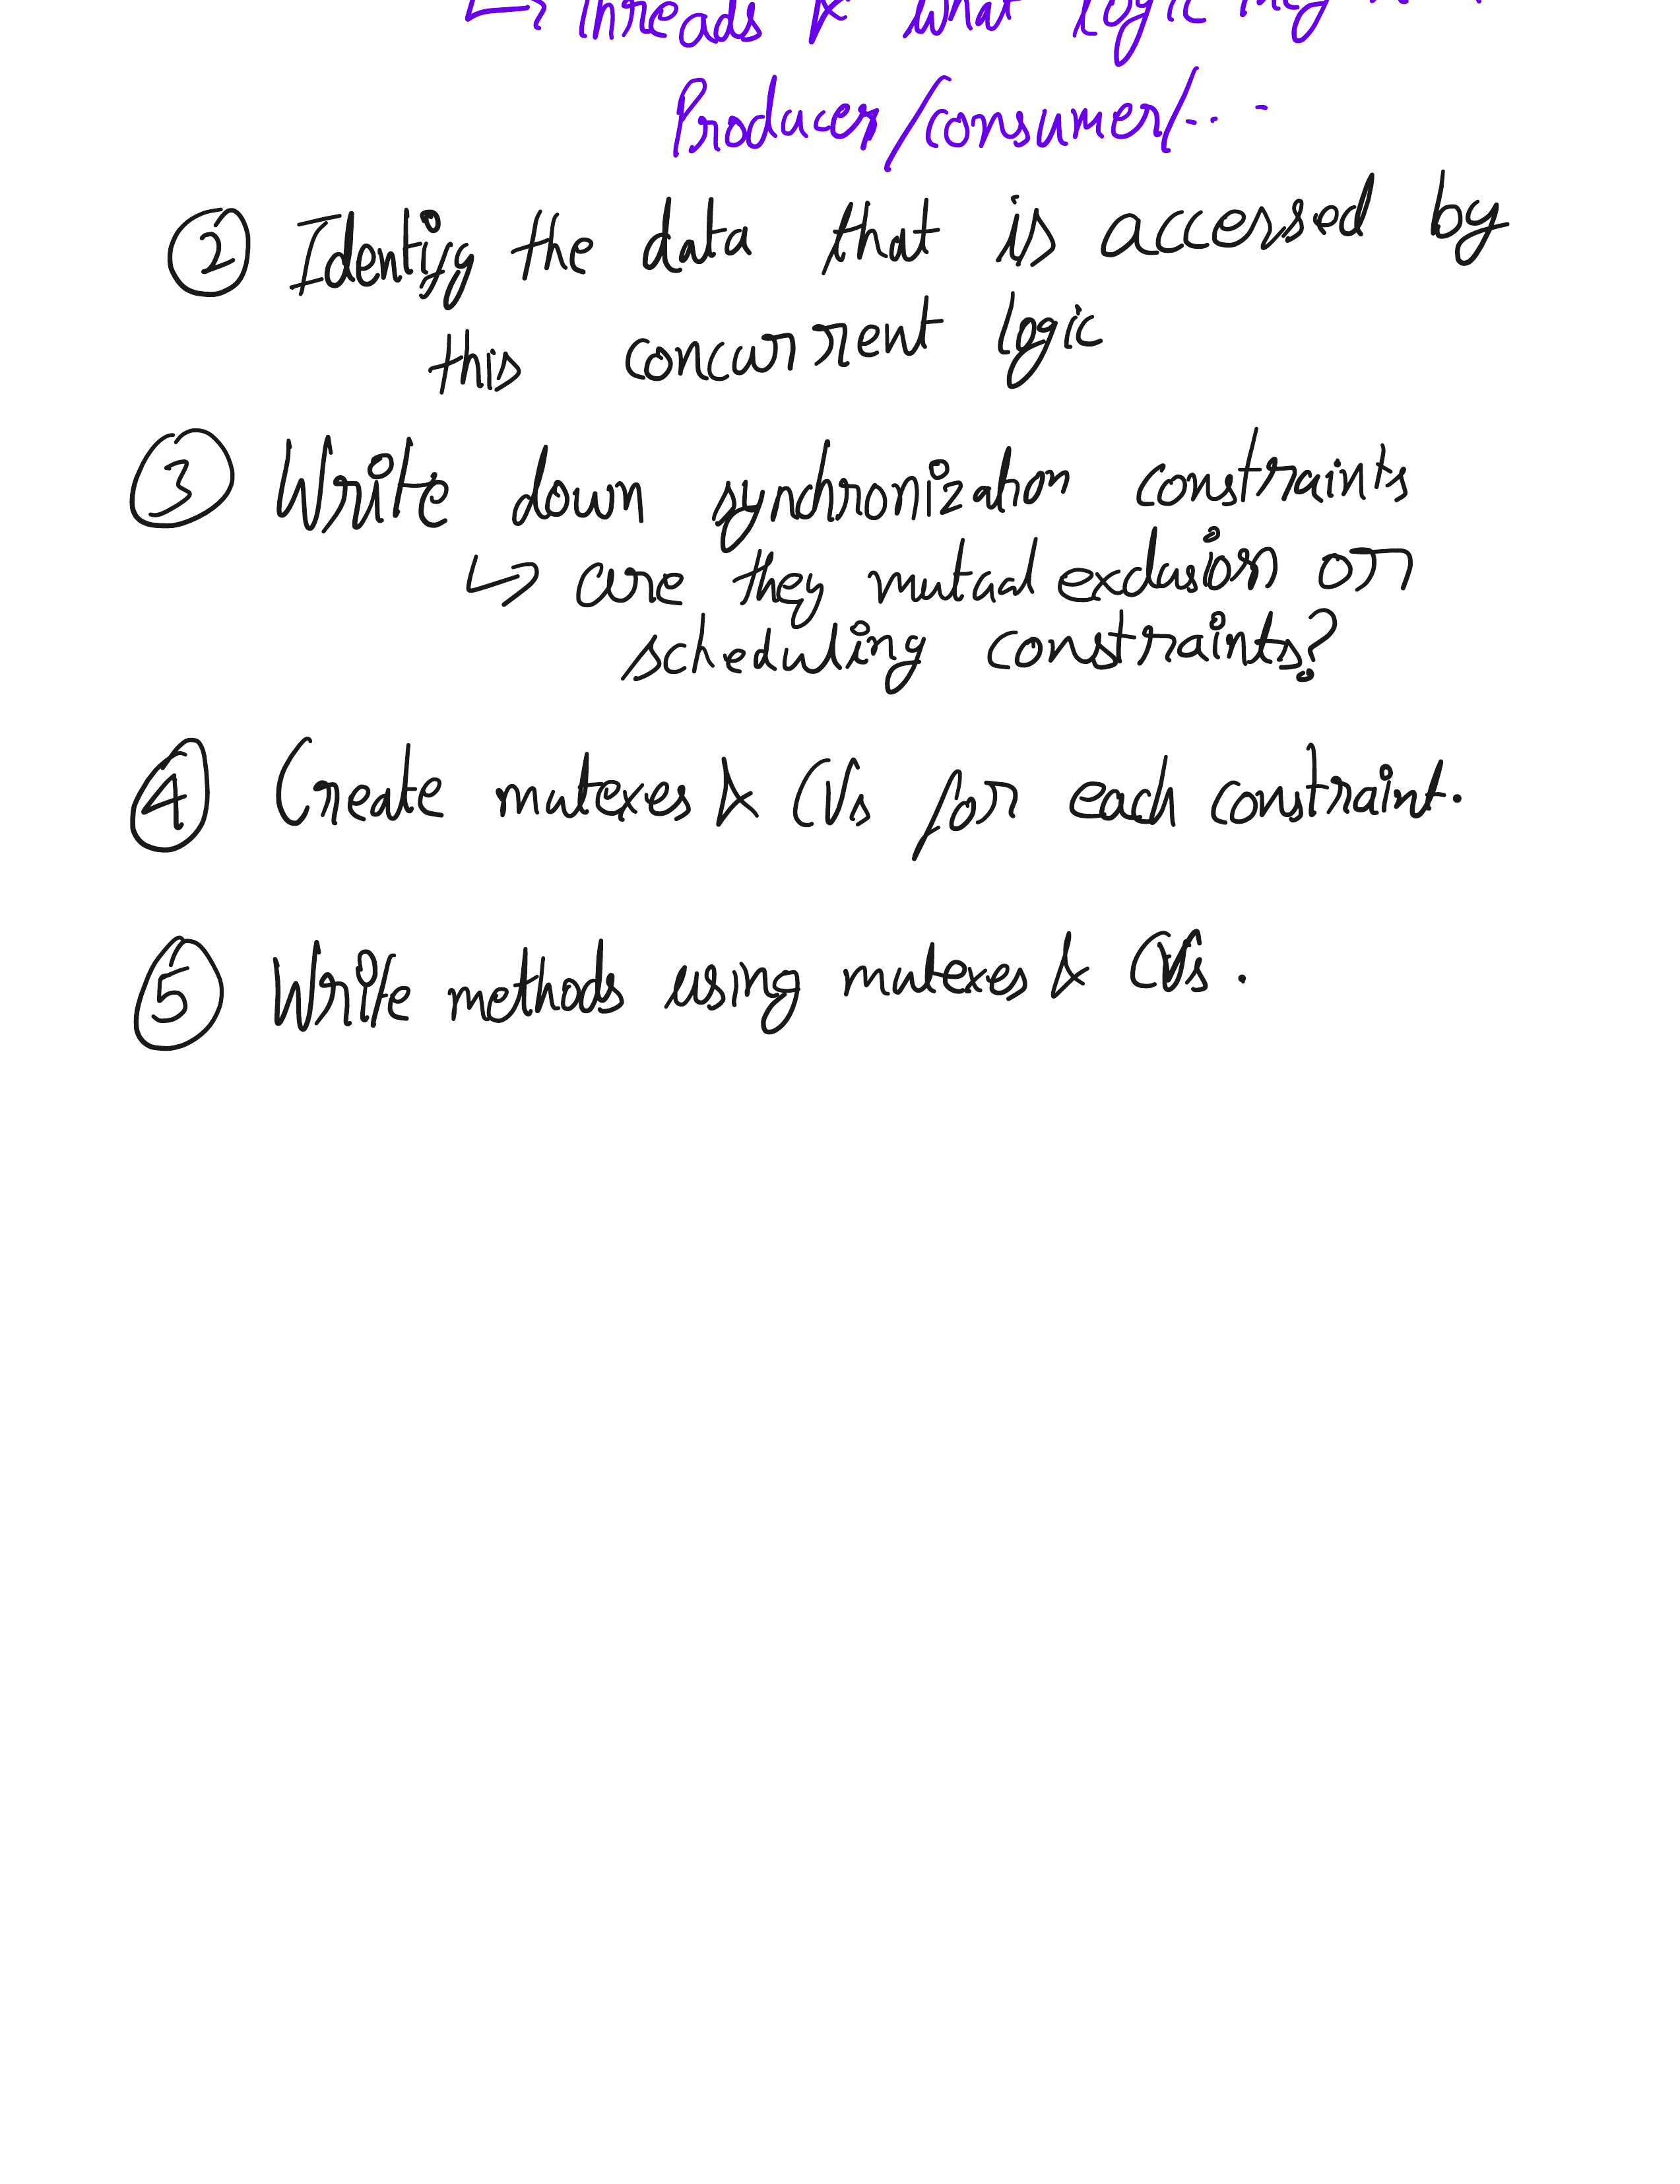 ↳ Threads & what logic they
Producer/consumer/...
② Identify the data that is accessed by
this concurrent logic
③ Write down synchronization constraints
↳ are they mutual exclusion or
scheduling constraints?
④ Create mutexes & CVs for each constraint.
⑤ Write methods using mutexes & CVs.